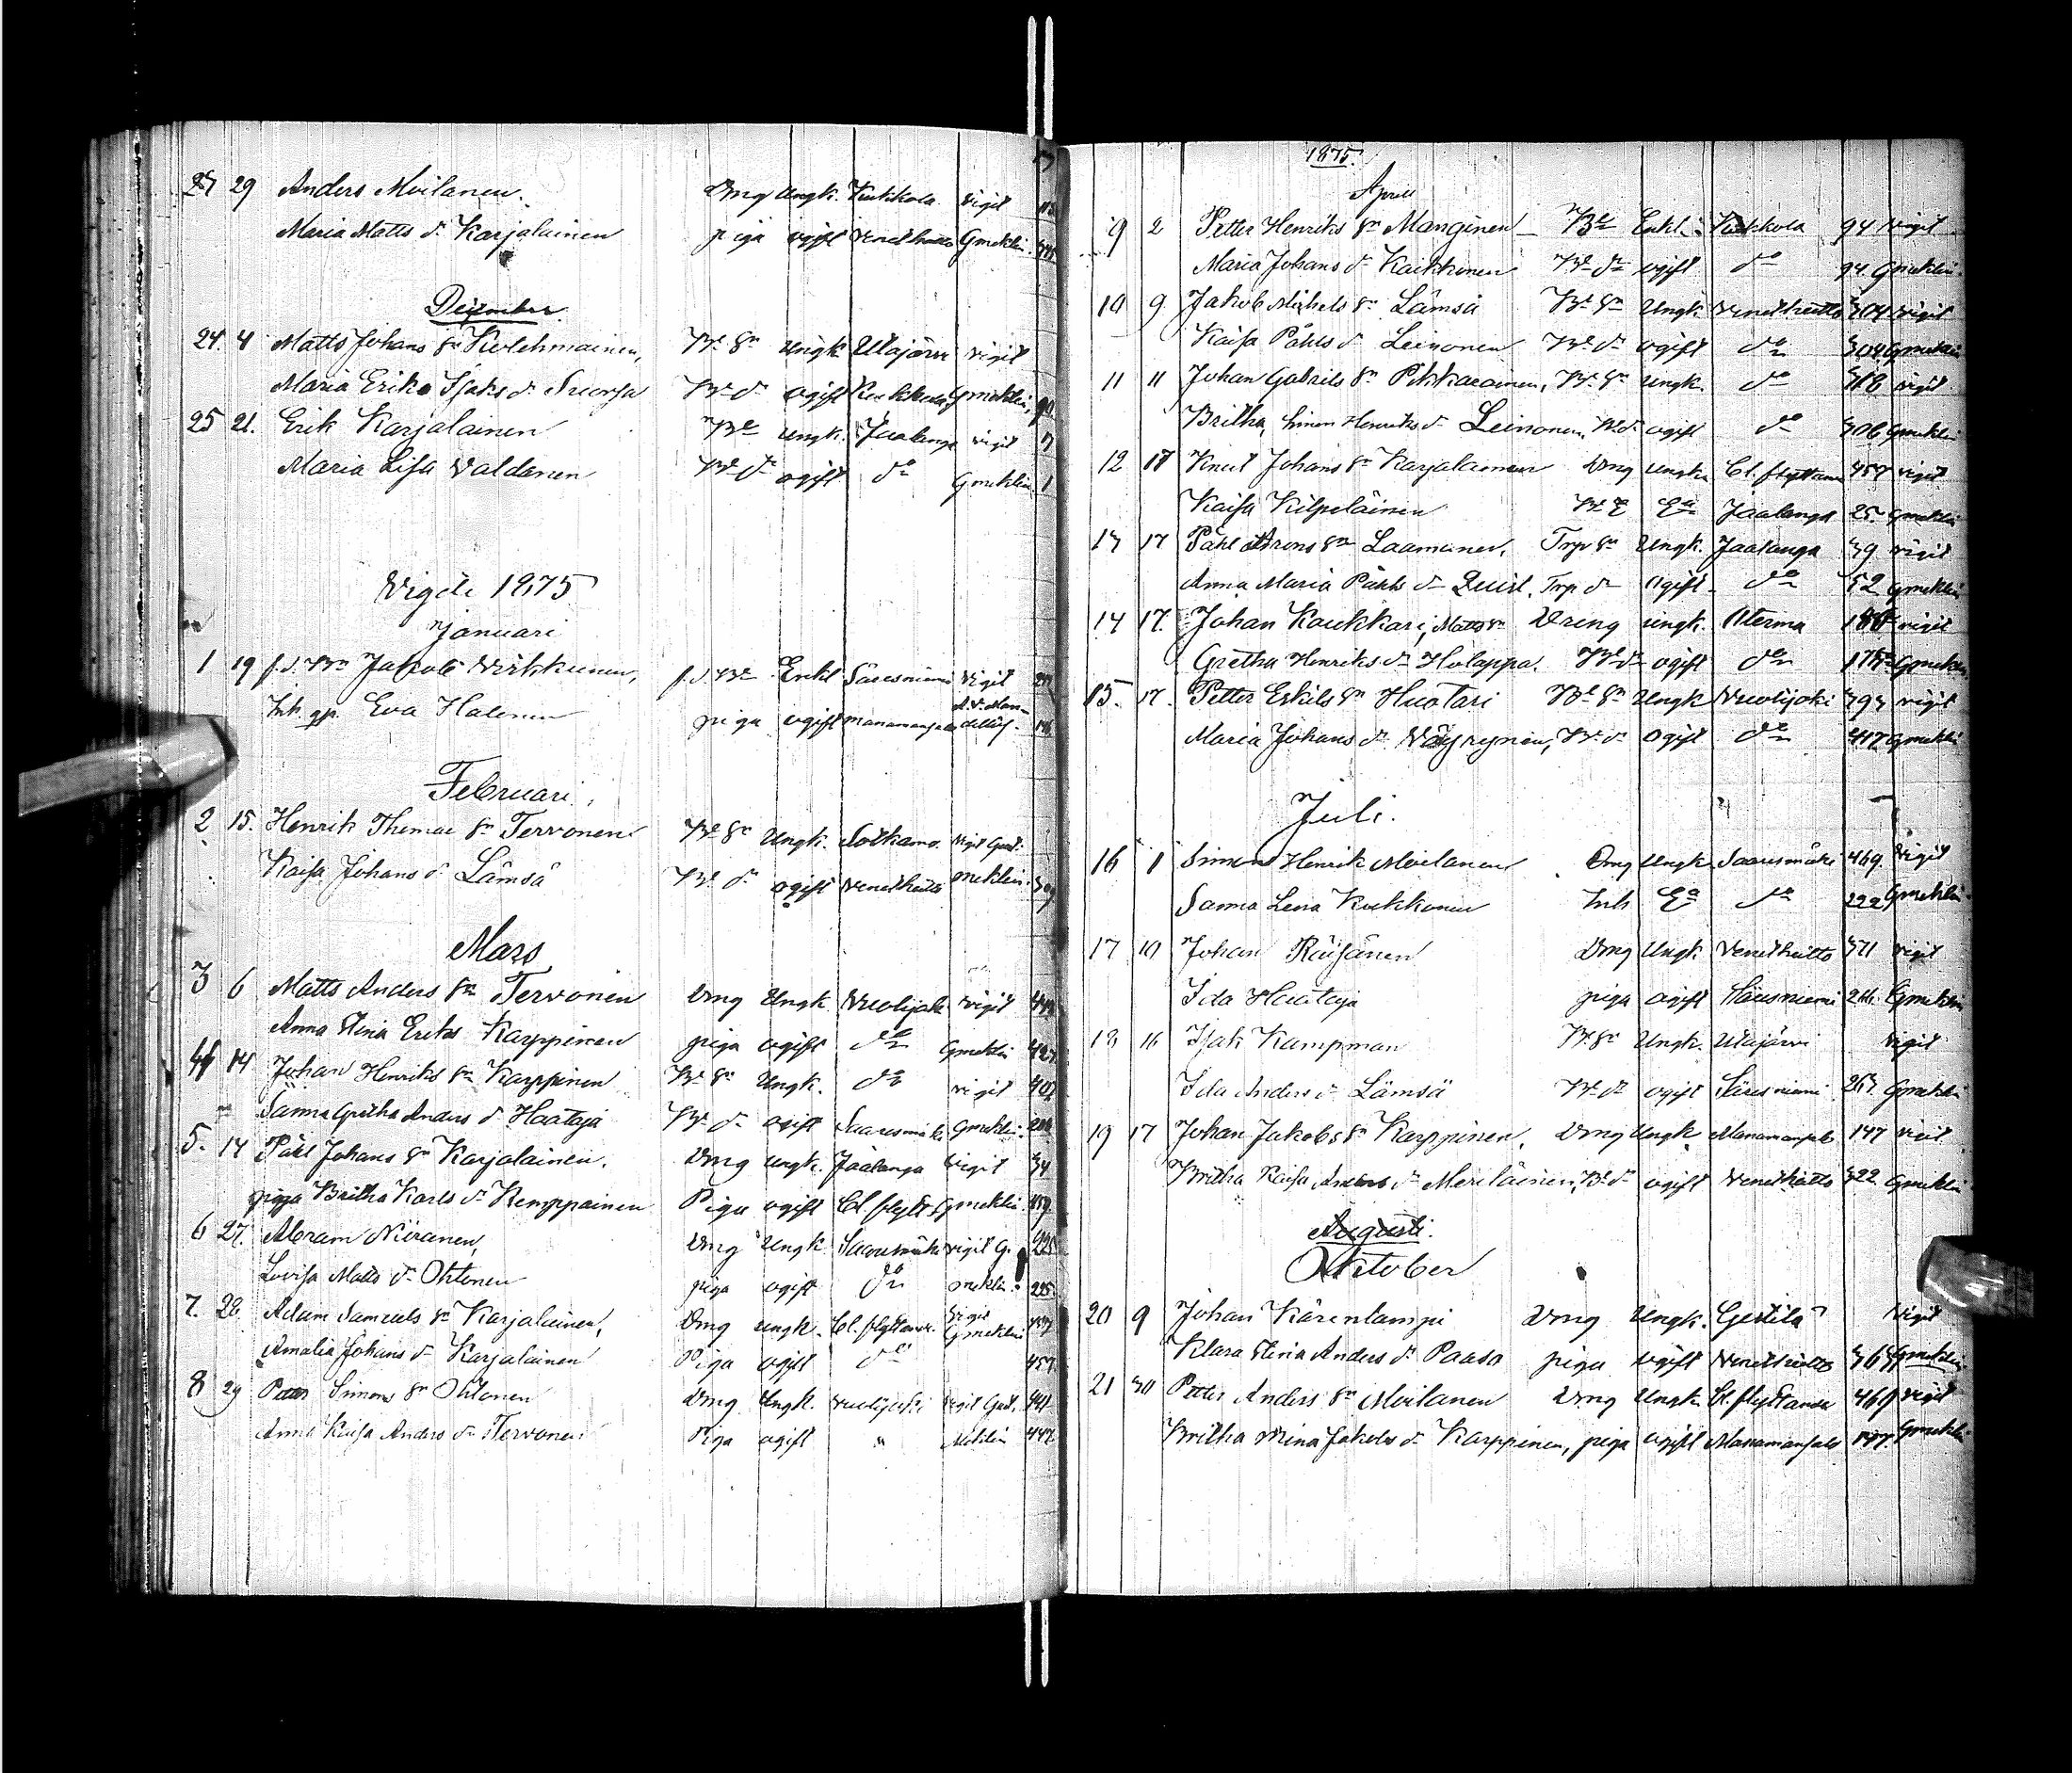 27 29 Anders Moilanen Dräng Ungk. Kukkola vigit
Maria Matts dr Karjalainen piga ogift Venetheitto Gmeklin.
December
24. 4 Matts Johans Sn Kolehmainen, Bd. Sn Ungk Utajärvi vigit
Maria Eriks Isaks dr Suorsa Bd. dr ogift Kukkola Gmeklin, 90
25 21. Erik Karjalainen Bde ungk. Jaalanga vigit
Maria Lisa Valdanen Bd. dr ogift do Gmeklin 1
Vigde 1875
Januari
1 19 f.d. Bn Jakob Virkkunen, f.d. Bn Enkl Säresniemi Vigit
Inh. gp. Eva Halonen piga ogift Manamansalo
Februari
2 15. Henrik Thomae Sn Tervonen Bd Sn Ungk. Sotkamo. Vigit Gust.
Kaisa Johans dr Lämsä Bd. dr ogift Venetheitto Meklin. 309
Mars
3 6 Matts Anders Sn Tervonen Dng Ungk Vuolijoki vigit
Anna Stina Eriks Karppinen piga ogift do Gmeklin 427.
4 14 Johan Henriks Sn Karppinen Bd. Sn Ungk. do vigit 402
Sanna Gretha Anders dr Haataja Bd. dr ogift Saaresmäki Gmeklin.
5. 14 Påhl Johans Sn Karjalainen. Dng ungk. Jaalanga Vigit 34
piga Britha Karls dr Kemppainen Piga ogift Bl. flytt Gmeklin. 459.
6 27. Abram Niiranen, Dng Ungk Saaresmäki vigit G. 225
Lovisa Matts dr Ohtonen piga ogift do meklin. 225
7. 28 Adam Samuels Sn Karjalainen, Dng ungk. Bl. flyttande. Vigit Gmeklin 457
Amalia Johans dr Karjalainen Piga ogift do 457.
8 29 Petter Simons Sn Ohtonen Dng Ungk. Vuolijoki Vigit Gust. 441
Anna Kaisa Anders dr Tervonen Piga ogift " Meklin 447.
1875.
April
9 2 Petter Henriks Sn Manginen Bde Enkl. Kukkola 94 vigit
Maria Johans dr Kaikkonen Bd. dr ogift do 94 Gmeklin.
10 9 Jakob Mickels Sn Lämsä Bd. Sn Ungk. Venetheitto 304 Vigit
Kaisa Påhls dr Leinonen Bd. dr ogift do 304 Gmeklin
11 11 Johan Gabriels Sn Pikkarainen, Bd. Sn Ungk. do 318 vigit
Britha, Simon Henriks dr Leinonen, Bd. dr ogift do 306 Gmeklin
12 17 Knut Johans Sn Karjalainen Dng ungk. Bl. flyttande 457 vigit
Kaisa Kilpeläinen Bd. E Ea Jaalanga 25. Gmeklin
13 17 Påhl Arons Sn Laamanen. Trp Sn Ungk. Jaalanga 39 vigit
Anna Maria Påhls dr Quist, Trp dr Ogift. do 52 Gmeklin
14 17. Johan Kaukkari, Matts Sn Dräng ungk. Aterma vigit
Gretha Henriks dr Hulappa. Bd. dr ogift do Gmeklin
15. 17. Petter Eskils Sn Huotari Bd. Sn Ungk Vuolijoki 393 vigit
Maria Johans dr Väyrynen, Bd. dr Ogift do 417 Gmeklin
Juli.
16 1 Simon Henrik Moilanen Dng Ungk. Saaresmäki 469. Vigit
Sanna Lena Kukkonen Inh Ea do 222 Gmeklin
17 10 Johan Räisänen Dng Ungk Venetheitto 371 vigit
Ida Haataja piga ogift Säresniemi 266. Gmeklin
18 16 Isak Kampman Bd. Sn Ungk. Utajärvi Vigit
Ida Anders dr Lämsä Bd. dr ogift Säresniemi 263. Gmeklin
19 17 Johan Jakobs Sn Karppinen, Dng Ungk Manamansalo 147 vigit
Britha Kaisa Anders dr Meriläinen, Bd. dr ogift Venetheitto 322 Gmeklin
Augusti.
Oktober
20 9 Johan Kärenlampi Dng Ungk. Gestilä Vigit
Klara Stina Anders dr Paaso piga ogift Venetheitto 363 Gmeklin
21 30 Petter Anders Sn Moilanen Dng Ungk. Bl. flyttande 469 vigit
Britha Mina Jakobs dr Karppinen, piga ogift Manamansalo 147. Gmeklin